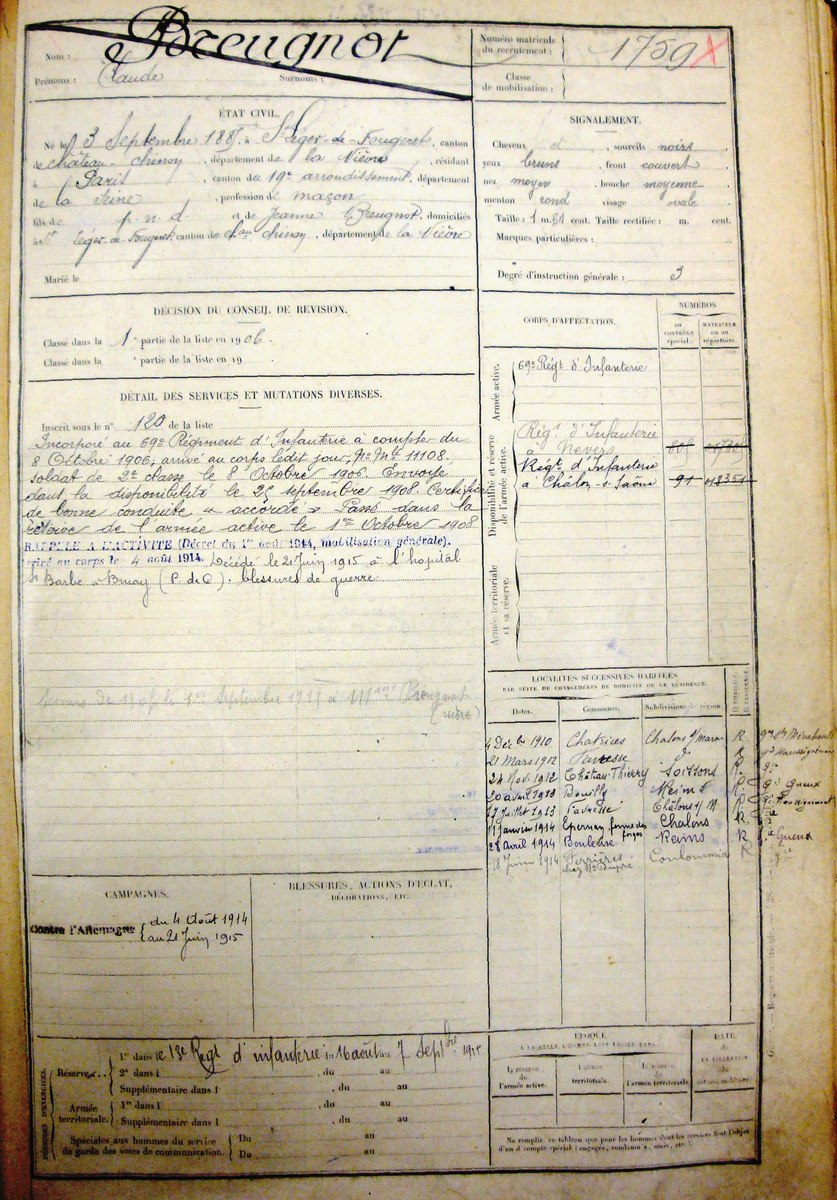 Nom : Breugnot
Prénoms : Claude Surnoms :
Numéro matricule du recrutement : 1759
Classe de mobilisation :
ÉTAT CIVIL.
Né le 3 Septembre 1885, à St Léger-de-Fougeret, canton
de Château-Chinon, département de la Nièvre, résidant
à Paris, canton du 19e arrondissement, département
de la Seine, profession de maçon
fils de p. n. d. et de Jeanne Breugnot, domiciliés
à St Léger-de-Fougeret, canton de Chau Chinon, département de la Nièvre
Marié le
SIGNALEMENT.
Cheveux et, sourcils noirs
yeux bruns, front couvert
nez moyen, bouche moyenne
menton rond visage ovale
Taille : 1 m. 61 cent. Taille rectifiée : m. cent.
Marques particulières :
Degré d'instruction générale : 3
DÉCISION DU CONSEIL DE REVISION.
Classé dans la 1e partie de la liste en 1906.
Classé dans la e partie de la liste en 19
CORPS D'AFFECTATION.
NUMÉROS
au contrôle spécial.
matricule ou au répertoire.
Armée active.
69e Régt d'Infanterie
Disponibilité et réserve de l'armée active.
Régt d'Infanterie
à Nevers
Régt d'Infanterie
à Châlon-s-Saône 91
Armée territoriale et sa réserve.
DÉTAIL DES SERVICES ET MUTATIONS DIVERSES.
Inscrit sous le n° 120 de la liste
Incorporé au 69e Régiment d'Infanterie à compter du
8 Octobre 1906, arrivé au corps ledit jour, No Mle 11108.
soldat de 2e classe le 8 Octobre 1906. Envoyé
dans la disponibilité le 25 septembre 1908. Certificat
de bonne conduite « accordé » Passé dans la
réserve de l'armée active le 1er Octobre 1908
RAPPELÉ A L'ACTIVITÉ (Décret du 1er août 1914, mobilisation générale).
Arrivé au corps le 4 août 1914. Décédé le 21 Juin 1915 à l'hopital
Ste Barbe à Bruay (P. de C). blessures de guerre
le 1er Septembre à Breugnot
(mère)
LOCALITÉS SUCCESSIVES HABITÉES
PAR SUITE DE CHANGEMENTS DE DOMICILE OU DE RÉSIDENCE.
Dates. Communes. Subdivisions de région.
4 Déc bre 1910 Chatrices Chalons s/ Marne R
21 Mars 1912 Favresse do R
24 Nov. 1912 Château-Thierry Soissons R.
20 avril 1913 Bouilly Reims R Gueux
17 Juillet 1913 Favresse Châlons s/ M R
11 Janvier 1914 Epernay ferme des forges Chalons R
28 avril 1914 Bouleuse Reims R Gueux
18 Juin 1914 Ferrières chez Mr Dupré Coulommiers R
CAMPAGNES.
Contre l'Allemagne { du 4 Août 1914
au 21 Juin 1915
BLESSURES, ACTIONS D'ÉCLAT,
DÉCORATIONS, ETC.
PÉRIODES D'EXERCICES.
Réserve
1re dans le 13e Regt d'infanterie du 16 août au 7 Septbre
2e dans l , du au
Supplémentaire dans l , du au
Armée territoriale.
1re dans l , du au
Supplémentaire dans l , du au
Spéciales aux hommes du service
de garde des voies de communication.
Du au
Du au
ÉPOQUE
À LAQUELLE L'HOMME DOIT PASSER DANS :
la réserve de l'armée active.
l'armée territoriale.
la réserve de l'armée territoriale.
DATE de LA LIBÉRATION du service militaire.
Ne remplir ce tableau que pour les hommes dont les services font l'objet
d'un décompte spécial (engagés, condamnés, omis, etc.).